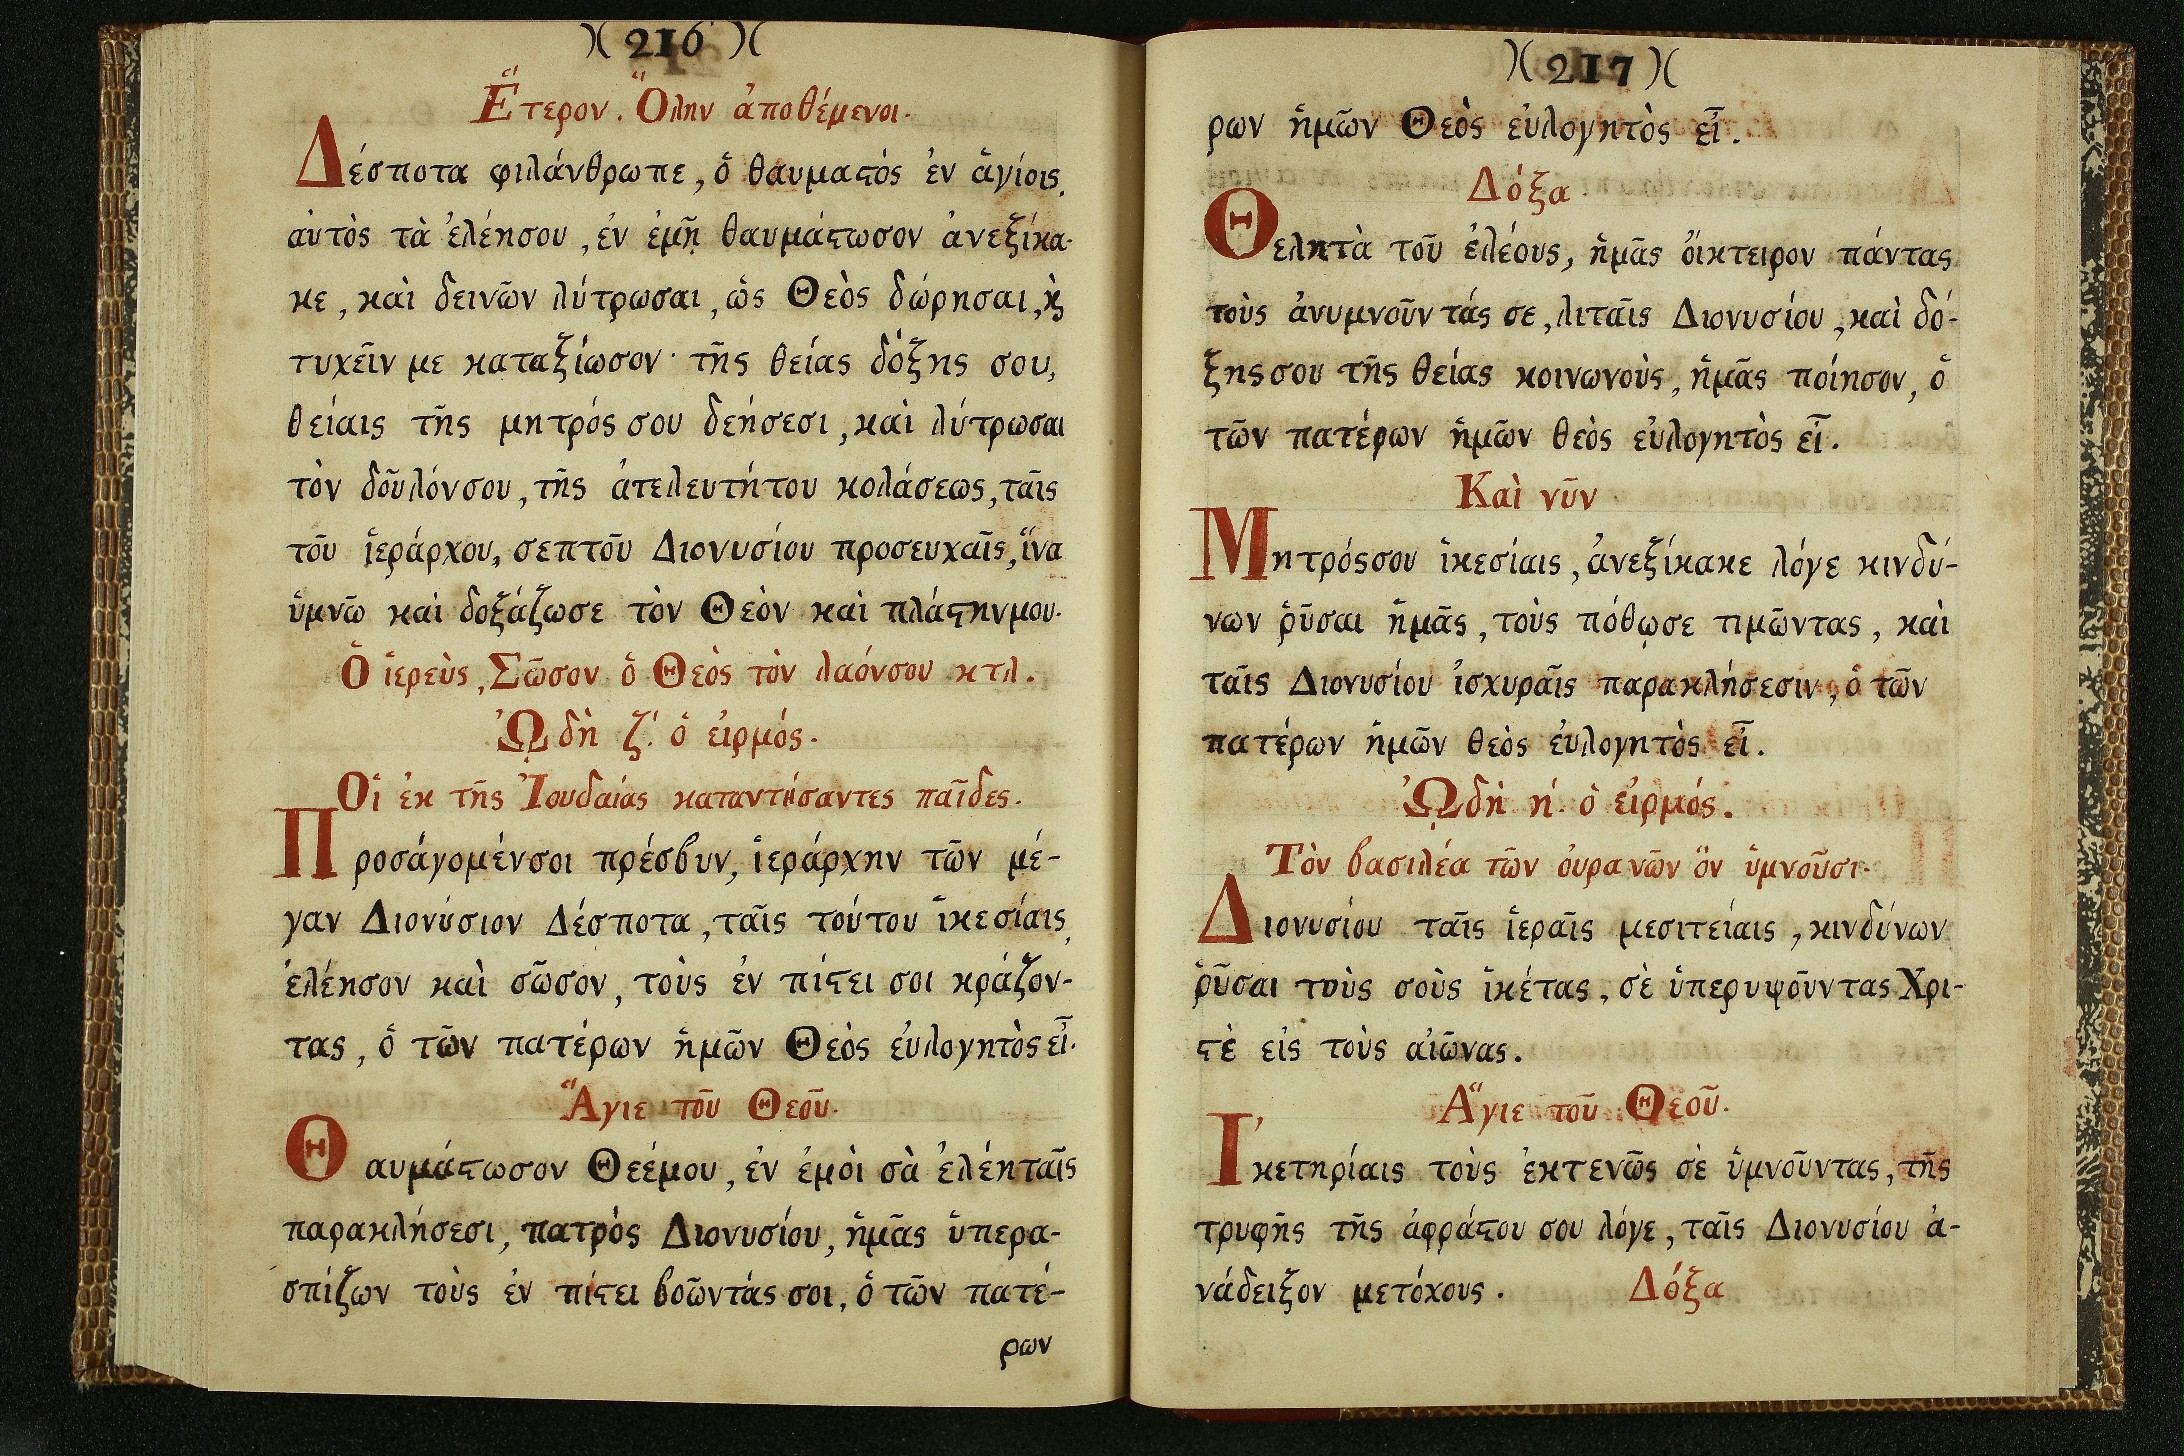 )( 216 )(
Ἕτερον. Ὅλην ἀποθέμενοι.
Δέσποτα φιλάνθρωπε, ὁ θαυμαϛός ἐν ἁγίοις,
αὐτὸς τὰ ἐλέησου, ἐν ἐμῇ θαυμάϛωσον ἀνεξίκα-
κε, καὶ δεινῶν λύτρωσαι, ὡς Θεὸς δώρησαι, ϗ
τυχεῖν με καταξίωσον· τῆς θείας δόξης σου,
θείαις τῆς μητρός σου δεήσεσι, καὶ λύτρωσαι
τὸν δοῦλόνσου, τῆς ἀτελευτήτου κολάσεως, ταῖς
τοῦ ἱεράρχου, σεπτοῦ Διονυσίου προσευχαῖς, ἵνα
ὑμνῶ καὶ δοξάζωσε τὸν Θεὸν καὶ πλάϛηνμου.
Ὁ ἱερεὺς, Σῶσον ὁ Θεὸς τὸν λαόνσου κτλ.
ᾨδὴ ζ΄. ὁ εἱρμός.
Οἱ ἐκ τῆς Ἰουδαίας καταντήσαντες παῖδες.
Προσάγομένσοι πρέσβυν, ἱεράρχην τῶν μέ-
γαν Διονύσιον Δέσποτα, ταῖς τούτου ἱκεσίαις,
ἐλέησον καὶ σῶσον, τοὺς ἐν πίϛει σοι κράζον-
τας, ὁ τῶν πατέρων ἡμῶν Θεὸς εὐλογητὸς εἶ.
Ἅγιε τοῦ Θεοῦ.
Θαυμάϛωσον Θεέμου, ἐν ἐμοὶ σὰ ἐλέηταῖς
παρακλήσεσι, πατρὸς Διονυσίου, ἡμᾶς ὑπερα-
σπίζων τοὺς ἐν πίϛει βοῶντάς σοι, ὁ τῶν πατέ-
ρων
)( 217 )(
ρων ἡμῶν Θεὸς εὐλογητὸς εἶ.
Δόξα
Θελητὰ τοῦ ἐλέους, ἡμᾶς οἴκτειρον πάντας
τοὺς ἀνυμνοῦντάς σε, λιταῖς Διονυσίου, καὶ δό-
ξης σου τῆς θείας κοινωνοὺς, ἡμᾶς ποίησον, ὁ
τῶν πατέρων ἡμῶν θεὸς εὐλογητὸς εἶ.
Καὶ νῦν
Μητρόςσου ἱκεσίαις, ἀνεξίκακε λόγε κινδύ-
νων ῥῦσαι ἡμᾶς, τοὺς πόθῳσε τιμῶντας, καὶ
ταῖς Διονυσίου ἰσχυραῖς παρακλήσεσιν, ὁ τῶν
πατέρων ἡμῶν θεὸς εὐλογητὸς εἶ.
ᾨδὴ η΄. ὁ εἱρμός.
Τὸν βασιλέα τῶν οὐρανῶν ὃν ὑμνοῦσι.
Διονυσίου ταῖς ἱεραῖς μεσιτείαις, κινδύνων
ῥῦσαι τοὺς σοὺς ἱκέτας, σὲ ὑπερυψοῦντας Χρι-
ϛὲ εἰς τοὺς αἰῶνας.
Ἅγιε τοῦ Θεοῦ.
Ἱκετηρίαις τοὺς ἐκτενῶς σὲ ὑμνοῦντας, τῆς
τρυφῆς τῆς ἀφράϛου σου λόγε, ταῖς Διονυσίου ἀ-
νάδειξον μετόχους. Δόξα